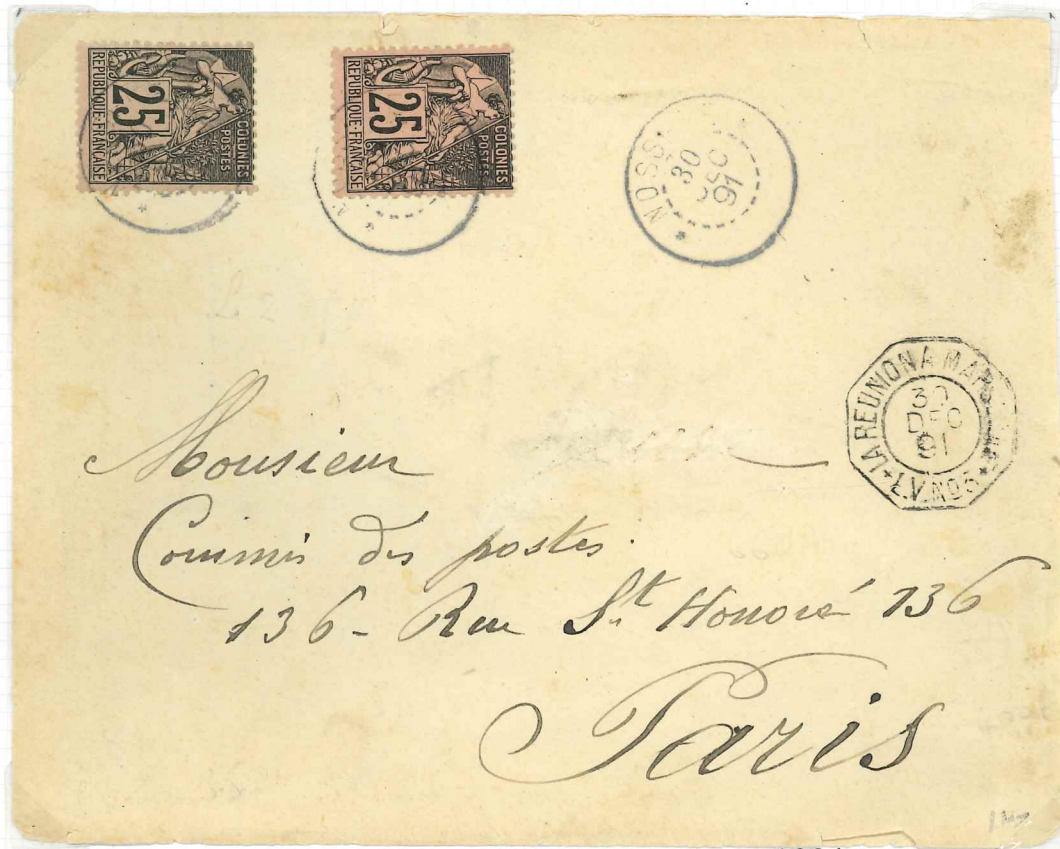 COLONIES
POSTES
25
REPUBLIQUE FRANÇAISE
COLONIES
POSTES
25
REPUBLIQUE FRANÇAISE
* NOSS
30
DEC
91
LA REUNION A MARS
30
DEC
91
L.V. N° 5
Monsieur
Commis des postes.
136 - Rue St. Honoré 136
Paris